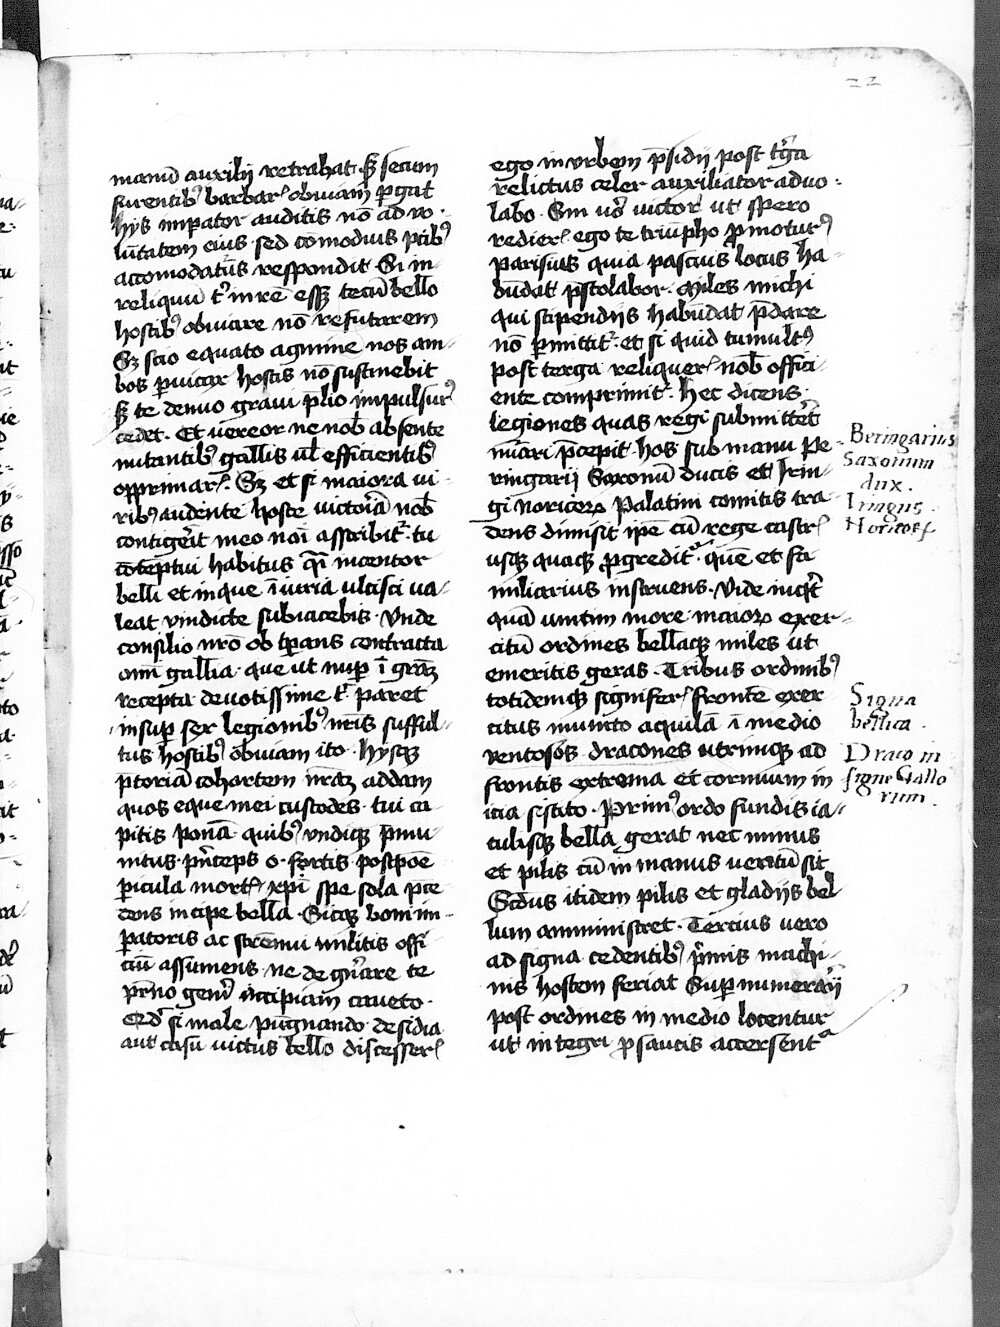 22
manū auxilij retrahat· sʒ secum
furentibꝰ barbarꝭ obuiam ꝑgat
hijs imꝑator auditis nō ad vo-
lūtatem eius sed cōmodius ptibꝰ
accomodatus respondit Si in-
reliquū tͥ in rē essꝫ tecū bello
hostibꝰ obuiare nō refutarem
Sʒ scio equato agmine nos am-
bos ꝑuicax hostis nō sustinebit
sʒ te denuo graui p̄lio impulsurꝰ
cedet· Et vereor ne nob̄ absente
nutantibꝰ gallis ul̄ efficientibꝰ
opprimarꝭ. Sʒ et si maiora vi-
ribꝰ audente hoste victoīa nob̄
contigēit meo noī asscribitᷣ· tu
cōteptui habitus q̄i incentor
belli et in que īiuria ulcisci va-
leat vindicte subiacebis· Vnde
consilio nr̄o ob tp̄ans contracta
om̄i gallia· que ut nuꝑ ī grāꝫ
recepta deuotissime tͥ paret
insuꝑ sex legionibꝰ nr̄is sufful-
tus hostibꝰ obuiam ito· Hysqꝫ
p̄toriā cohortem nr̄aꝫ addam
quos eque mei custodes· tui ca-
pitis ponā· quibꝰ vndiqꝫ p̄mu-
nitus· p̄nceps o· fortis postpōe
ꝑicula mortꝭ xp̄i spe sola p̄ce
dens incipe bella· Sicqꝫ boni im-
ꝑatoris ac strēnui militis offi
ciū assumens· ne degn̄are te
pr̄no gen̄e incipiam caueto·
Qd̄ si male pūgnando desidia
aut casū victus bello discesserꝭ
ego in vrbem p̄sidij post tḡa
relictus celer auxiliator aduo-
labo· Sin vō victor ut spero
redierꝭ ego te triūpho ꝓmoturꝰ
parisius quia pascuis locus ha-
būdat p̄stolabor· Miles michi
qui stipendijs habūdat p̄dare
nō ꝑmittitᷣ· et si quid tumultꝰ
post terga reliquerꝭ nob̄ offici-
ente comprimitᷣ· Hec dicens
legiones quas regi submittēt
nūari p̄cepit· hos sub manu Pe-
ringarij Saxonū ducis et Irin-
gi noricoꝝ Palatini comitis tra-
dens dimisit ip̄e cū rege castrꝭ
usqꝫ quaqꝫ ꝓgreditᷣ quē et sā
miliarius instruens· Vide inq̄t
quā unum more maioꝝ exer-
citū ordines bellaqꝫ miles ut
emeritis geras· Tribus ordinibꝰ
totidemqꝫ signiferꝭ fronte exer
citus munito aquilā ī medio
ventosos dracones utrimqꝫ ad
frontis extrema et cornuum in
icia sistito· Primꝰ ordo fundis ia-
culisqꝫ bella gerat nec minus
et pilis cū in manus ventū sit
Scd̄us itidem pilis et gladijs bel
lum amministret· Tercius vero
ad signa cedentibꝰ p̄mis machi-
nis hostem feriat Suꝑnumerarij
post ordines in medio locentur
ut integri ꝓ saucis accersentᷣ
Beringarius
Saxonum
dux.
Iringus
Noricoꝝ
Signa
bellica.
Draco in
signe Gallo
rum.